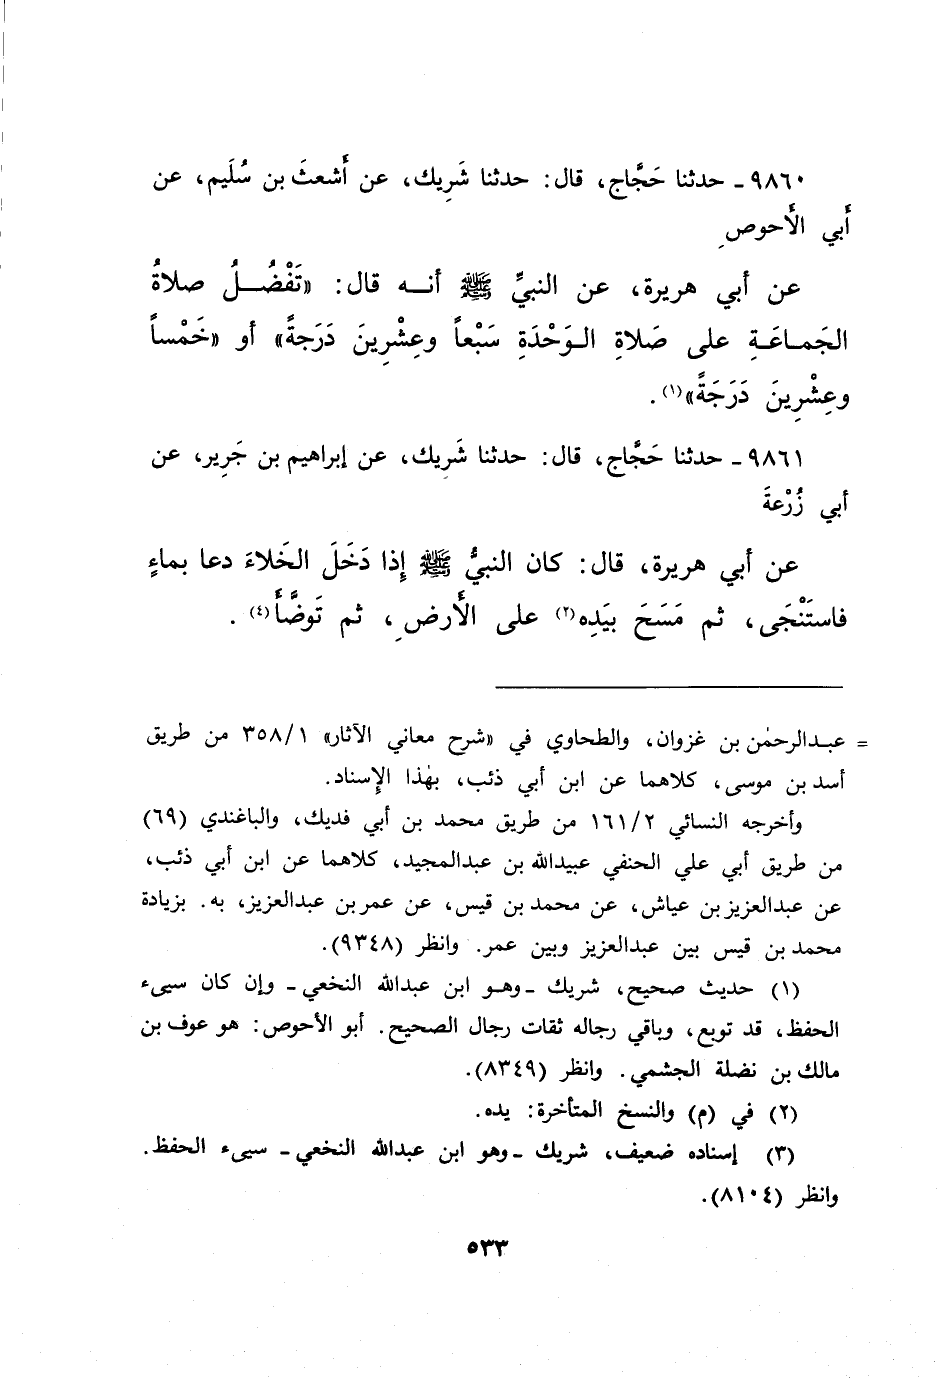 ٩٨٦٠ ـ حدثنا حَجَّاج، قال: حدثنا شَرِيك، عن أَشعثَ بن سُلَيم، عن
أَبي الأَحوصِ
عن أبي هريرة، عن النبيِّ ﷺ أنـــه قال: «تَفْضُـــلُ صلاةُ
الجَمـاعَـةِ على صَلاةِ الـوَحْدَةِ سَبْعاً وعِشْرِينَ دَرَجةً» أو «خَمْساً
وعِشْرِينَ دَرَجَةً»(١).
٩٨٦١ ـ حدثنا حَجَّاج، قال: حدثنا شَرِيك، عن إبراهيم بن جَرِير، عن
أبي زُرْعةَ
عن أبي هريرة، قال: كان النبيُّ ﷺ إِذا دَخَلَ الخَلاءَ دعا بماءٍ
فاستَنْجَى، ثم مَسَحَ بيَدِه(٢) على الأَرضِ، ثم تَوضَّأَ(٤).
= عبـدالرحمٰن بن غزوان، والطحاوي في «شرح معاني الآثار» ٣٥٨/١ من طريق
أسد بن موسى، كلاهما عن ابن أبي ذئب، بهٰذا الإِسناد.
وأخرجه النسائي ١٦١/٢ من طريق محمد بن أبي فديك، والباغندي (٦٩)
من طريق أبي علي الحنفي عبيدالله بن عبدالمجيد، كلاهما عن ابن أبي ذئب،
عن عبدالعزيز بن عياش، عن محمد بن قيس، عن عمر بن عبدالعزيز، به. بزيادة
محمد بن قيس بين عبدالعزيز وبين عمر. وانظر (٩٣٤٨).
(١) حديث صحيح، شريك ـ وهـو ابن عبدالله النخعي ـ وإن كان سيىء
الحفظ، قد توبع، وباقي رجاله ثقات رجال الصحيح. أبو الأحوص: هو عوف بن
مالك بن نضلة الجشمي. وانظر (٨٣٤٩).
(٢) في (م) والنسخ المتأخرة: يده.
(٣) إسناده ضعيف، شريك ـ وهو ابن عبدالله النخعي ـ سيىء الحفظ.
وانظر (٨١٠٤).
٥٣٣